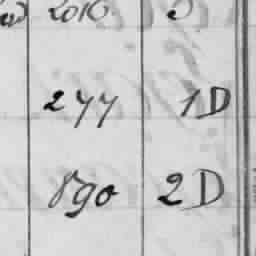 2010
277 1D
890 2D